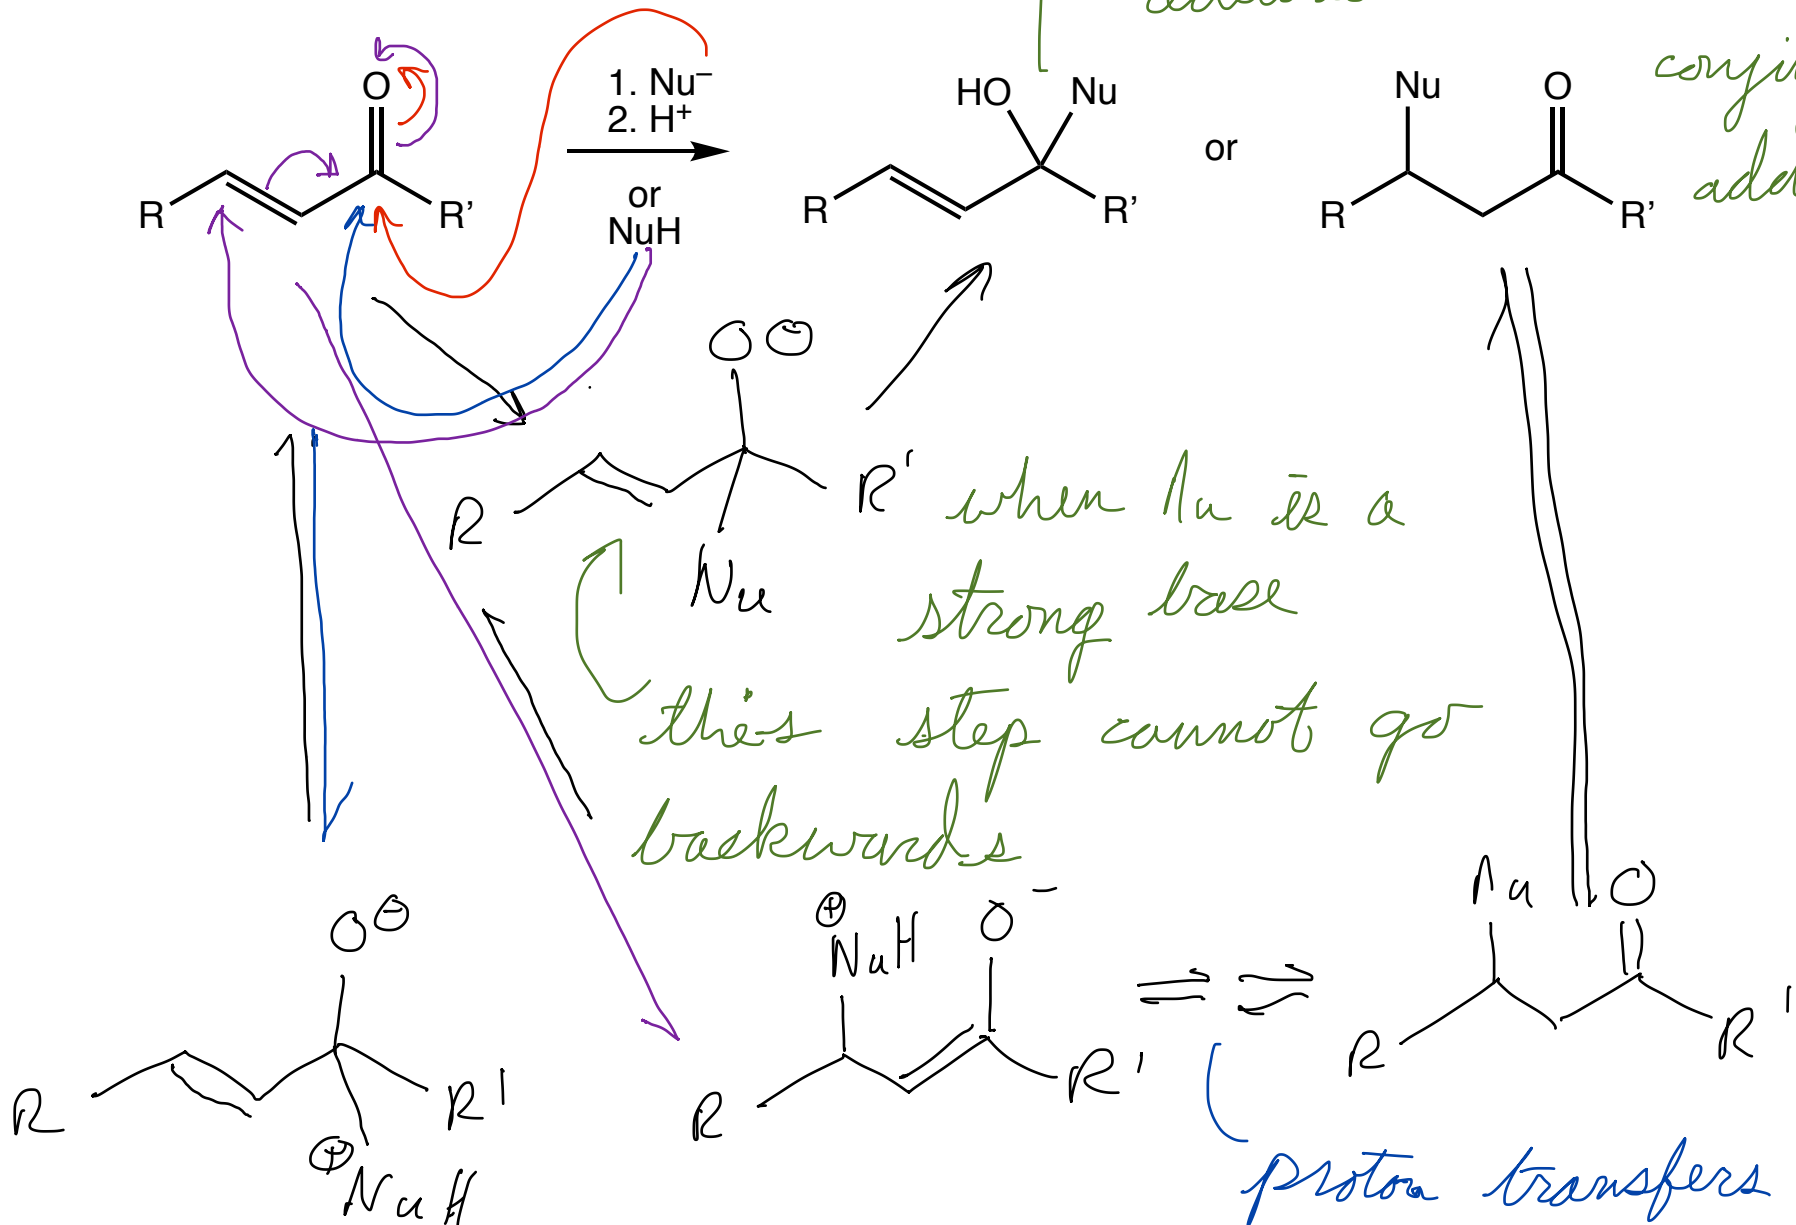 O
1. Nu⁻
2. H⁺
or
NuH
R
R'
HO Nu
R
R'
or
Nu O
R
R'
O ⊖
R
R'
Nu
when Nu is a
strong base
this step cannot go
backwards
O ⊖
R
R'
⊕
NuH
⊕
NuH
O⁻
R
R'
Nu O
R
R'
proton transfers